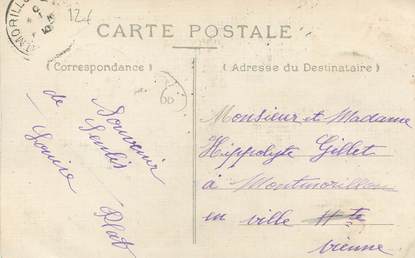 MORILLO
124
CARTE POSTALE
(Correspondance)
(Adresse du Destinataire)
Souvenir
de Senlis
Louise Plat
Monsieur et Madame
Hippolyte Gillet
à Montmorillon
en ville Hte
Vienne